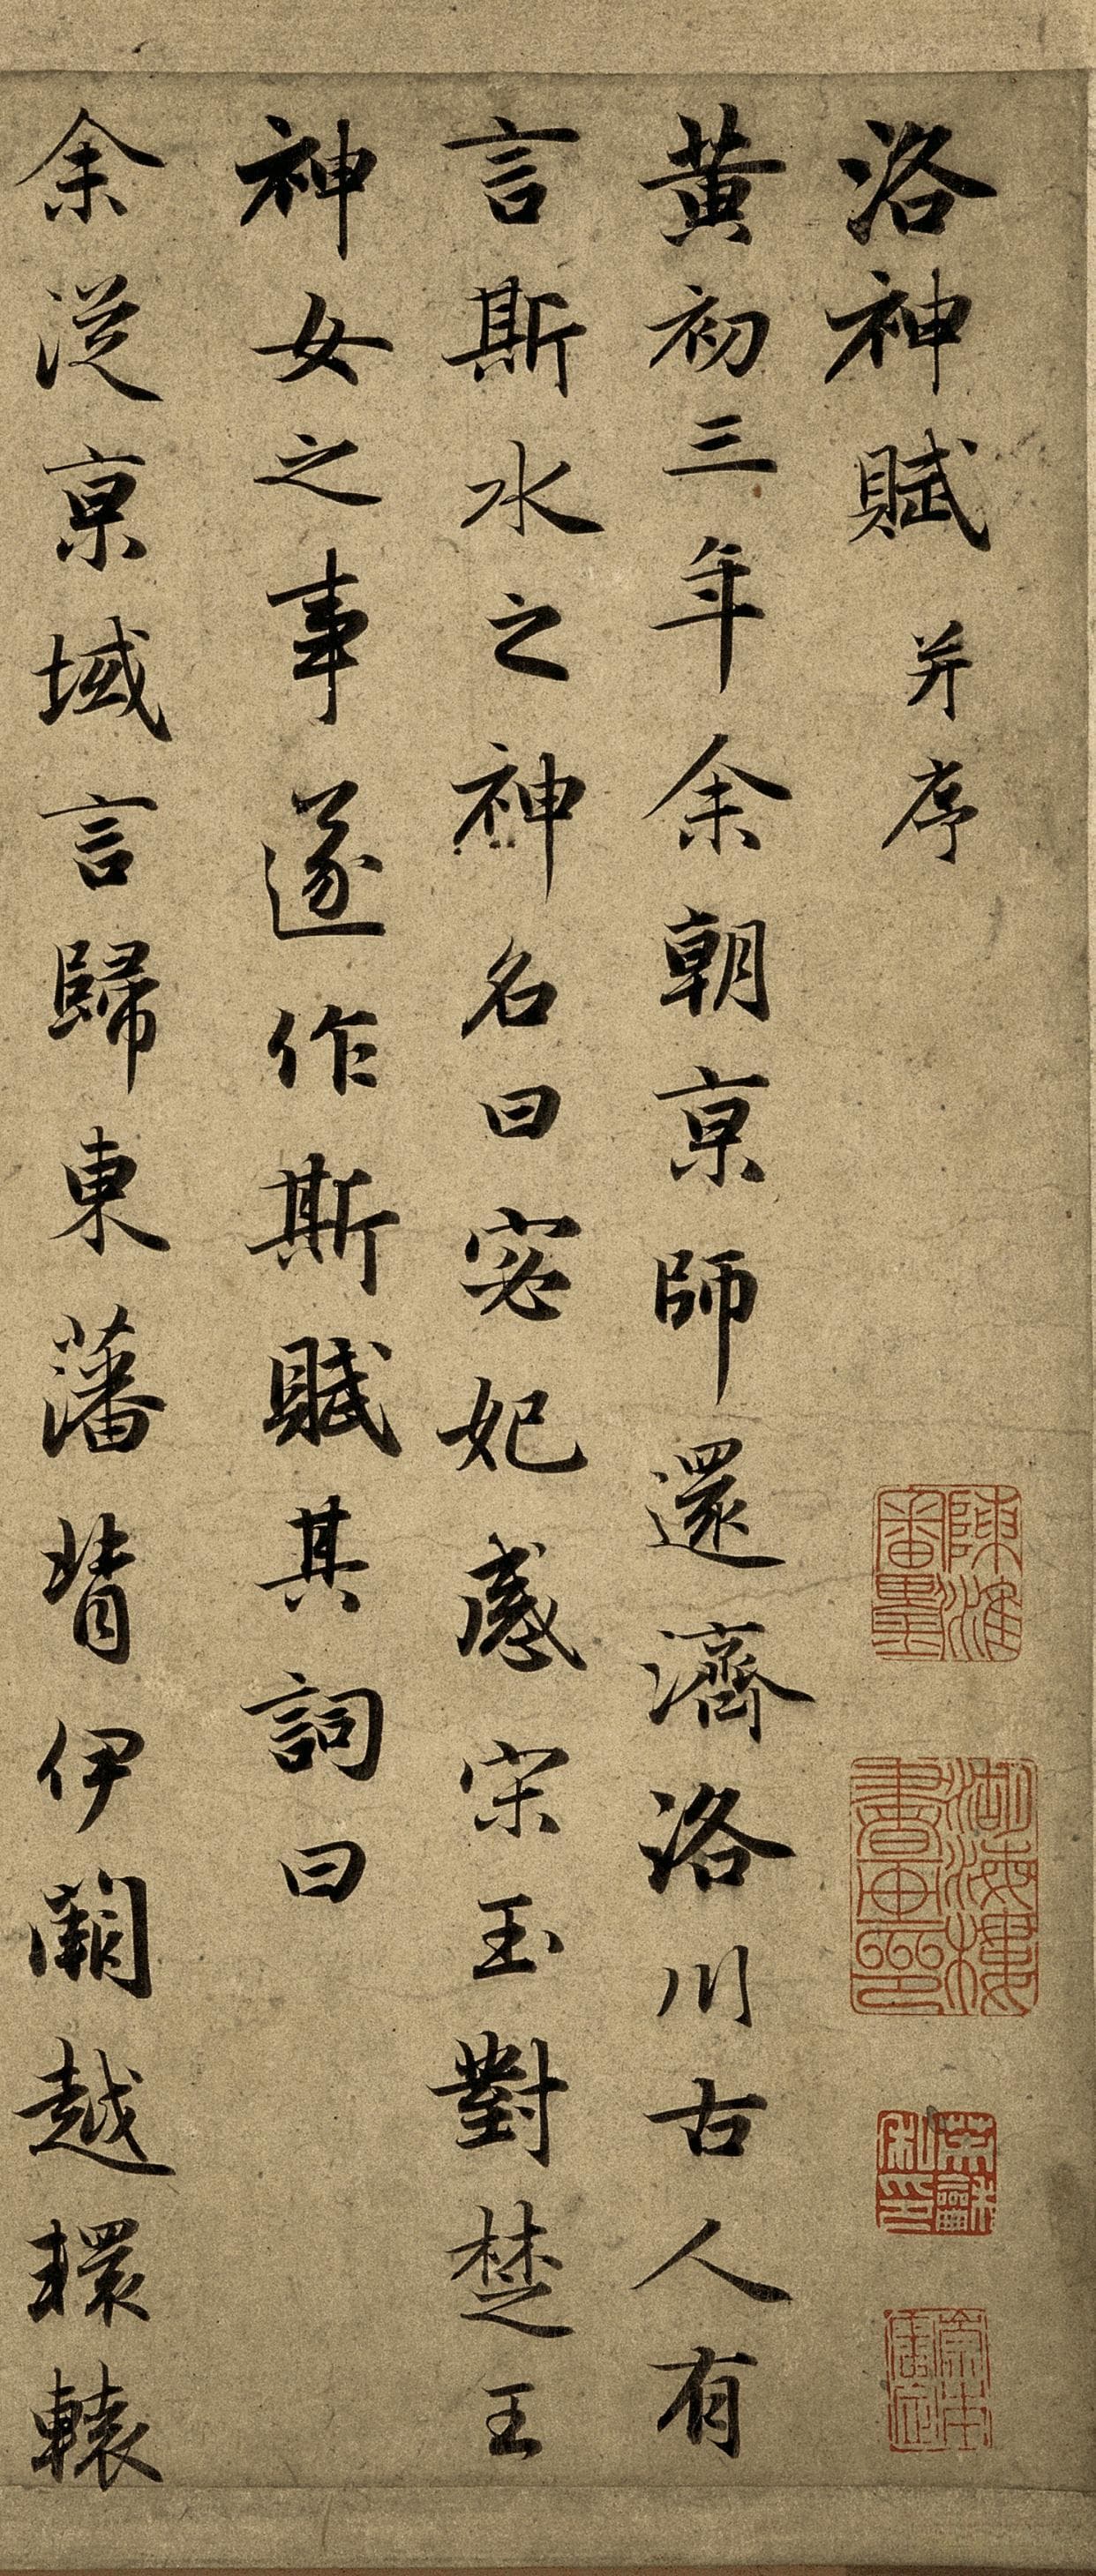 洛神賦 并序
黃初三年余朝京師還濟洛川古人有
言斯水之神名曰宓妃感宋玉對楚王
神女之事遂作斯賦其詞曰
余從京域言歸東藩背伊闕越轘轅
陳淮審墨
海樓書畫印